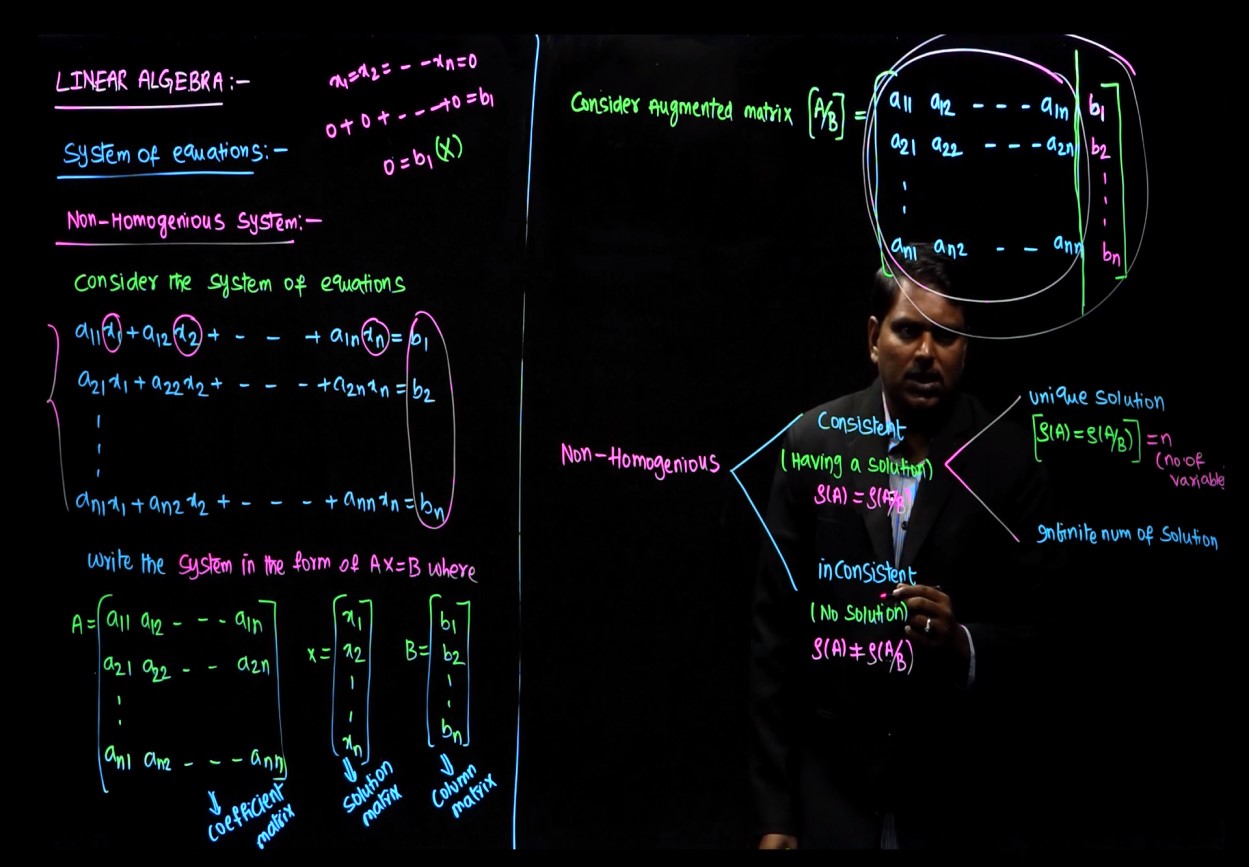 LINEAR ALGEBRA:-
x1=x2= - - xn=0
0+0+ - - - +0=b1
0=b1 (X)
System of equations:-
Non-Homogenious System:-
Consider the system of equations
a11x1+a12x2+ - - - +a1nxn=b1
a21x1+a22x2+ - - - +a2nxn=b2
an1x1+an2x2+ - - - +annxn=bn
write the system in the form of AX=B where
A=[a11 a12 - - - a1n
a21 a22 - - a2n
an1 an2 - - - ann]
X=[x1
x2
xn]
B=[b1
b2
bn]
⇓
coefficient
matrix
⇓
solution
matrix
⇓
column
matrix
Consider Augmented matrix [A/B] =
[a11 a12 - - - a1n | b1
a21 a22 - - - a2n | b2
an1 an2 - - ann | bn]
Non-Homogenious
Consistent
(Having a solution)
ρ(A)=ρ(A/B)
unique solution
[ρ(A)=ρ(A/B)]=n
(no of
variable
Infinite num of solution
inconsistent
(No solution)
ρ(A)≠ρ(A/B)